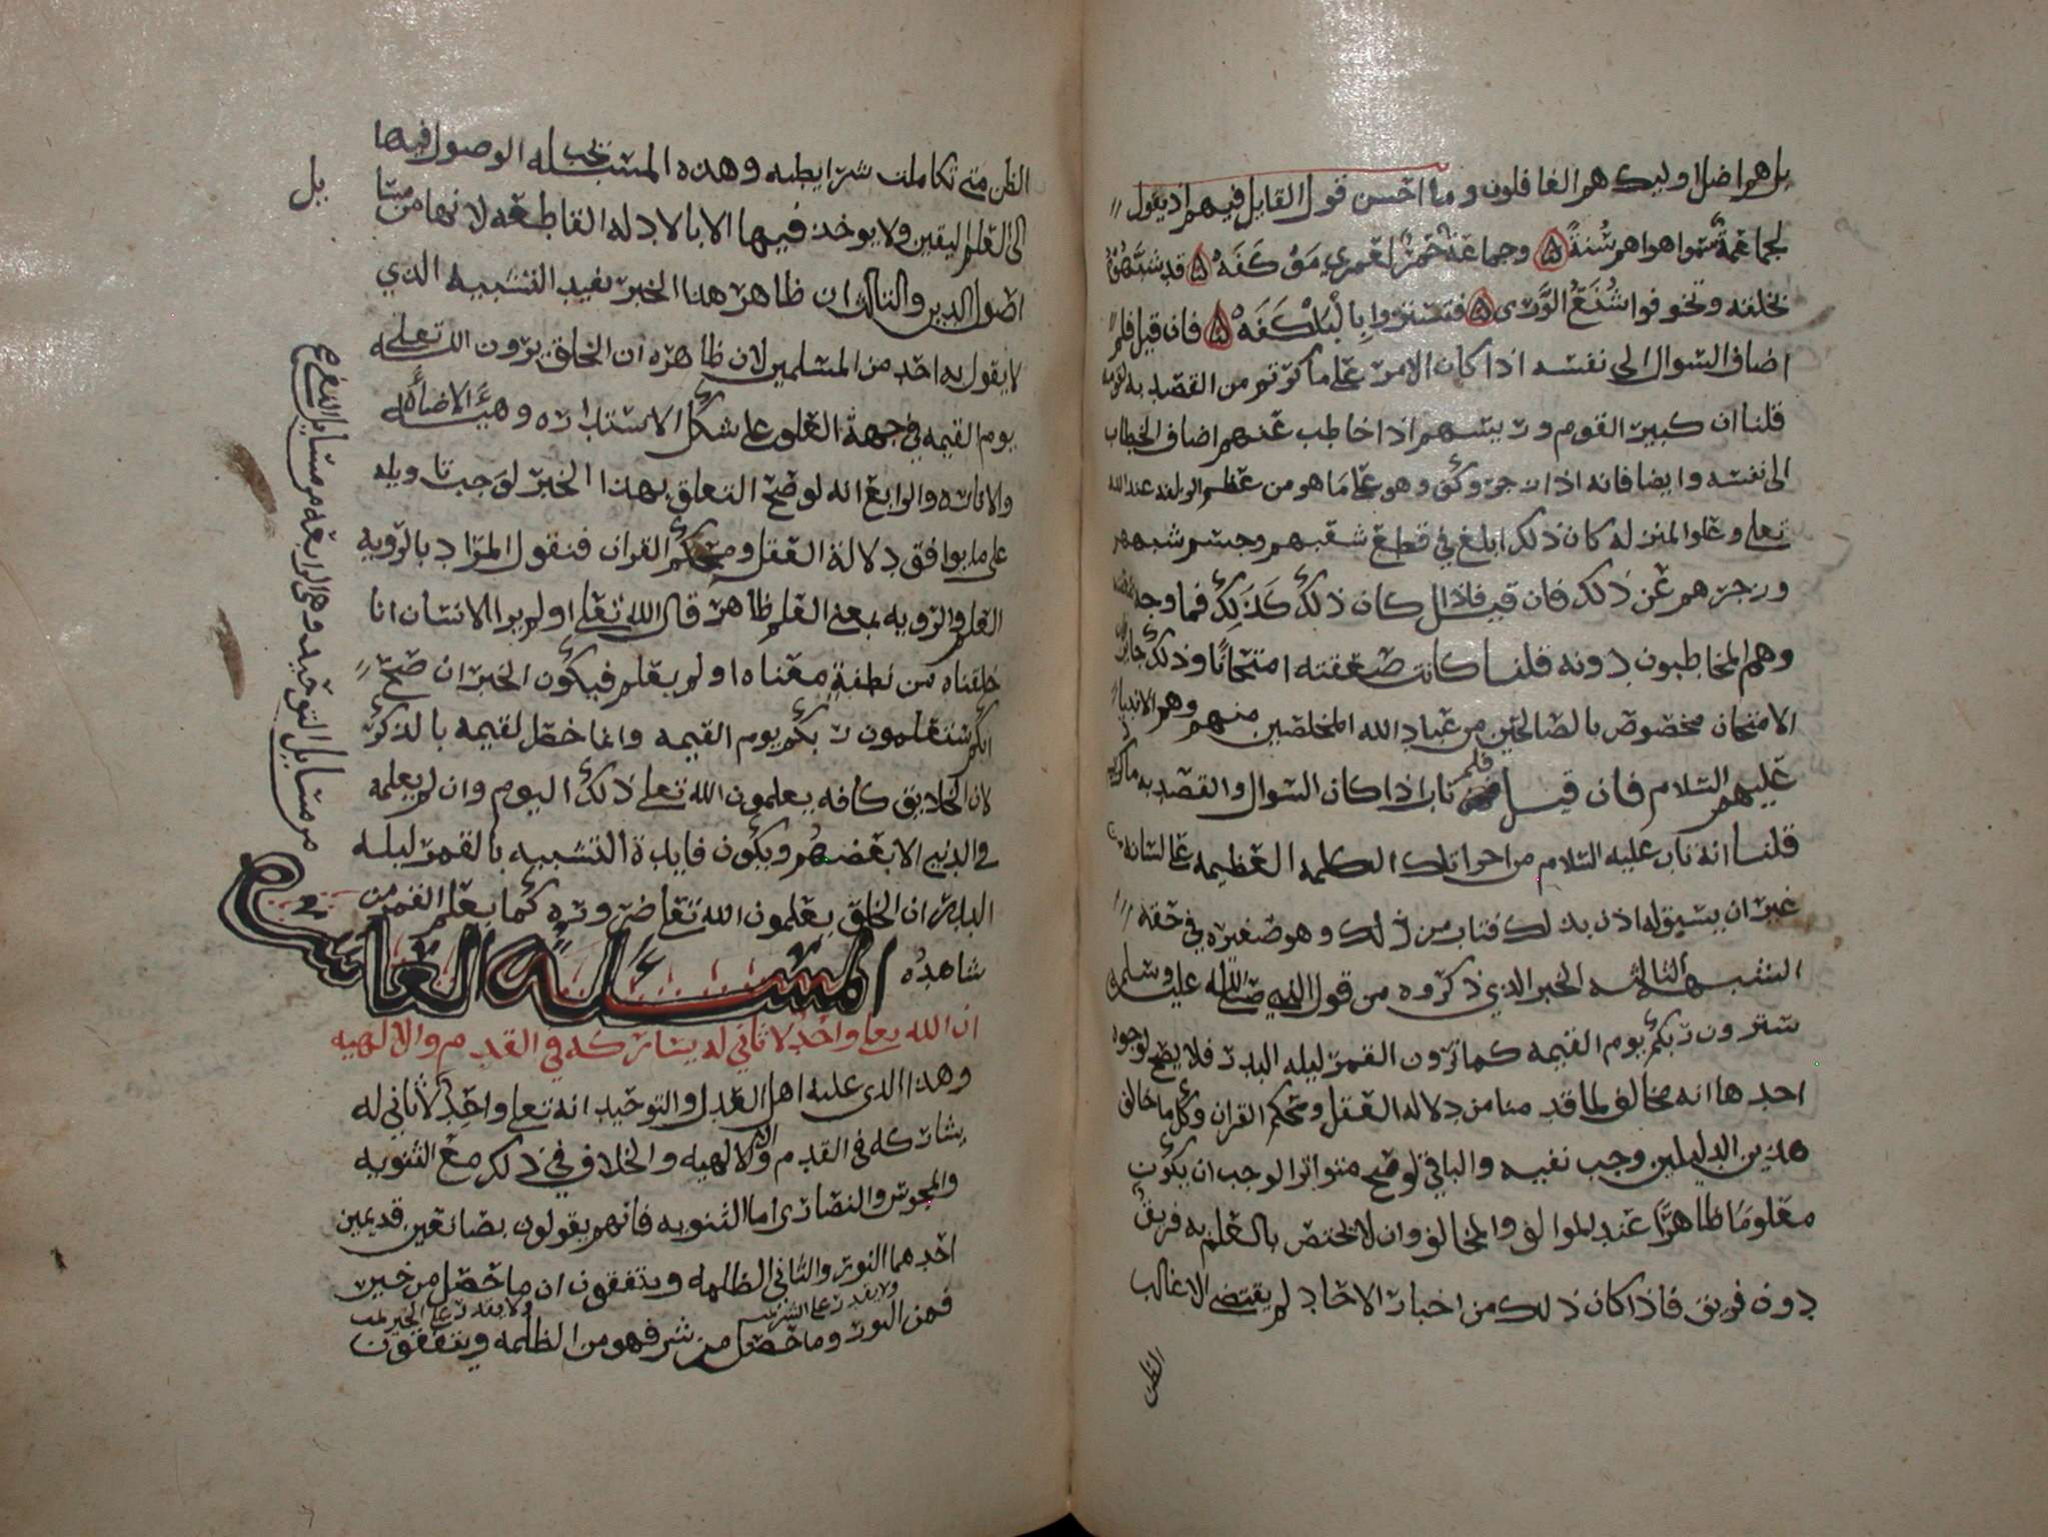 بل هم اضل اوليك هم الغافلون وما احسن قول القايل فيهم اذ يقول
لجماعة سموا هواهم سنة وجماعة حمر لعمري موكفه قد شبهوه
بخلقه وتخوفوا شنع الورى فتستروا بالبلكفه فان قيل فلم
اضاف السوال الى نفسه اذا كان الامر على ما ذكرتم من القصد به لقومه
قلنا ان كبير القوم وريسهم اذا خاطب عنهم اضاف الخطاب
الى نفسه وايضا فانه اذا زجر وهو على ما هو من عظم الزلفه عند الله
تعلى وعلو المنزله كان ذلك ابلغ في قطع شغبهم وحسم شبههم
وزجرهم عن ذلك فان قيل فاذا كان ذلك كذلك فما وجه
وهم المخاطبون دونه قلنا كانت صعقته امتحانا وذلك جايز
الامتحان مخصوص بالصالحين من عباد الله المخلصين منهم وهم الانبيا
عليهم السلام فان قيل فلم تاب اذا كان السوال والقصد به ما ذكرتم
قلنا انه تاب عليه السلام من اجرا تلك الكلمه العظيمه على لسانه من
غير ان يسبق له اذن بذلك فتاب من ذلك وهو صغيره في حقه
الشبهه الثالثه الخبر الذي ذكروه من قول النبي صلى الله عليه وسلم
سترون ربكم يوم القيمه كما ترون القمر ليله البدر فلا يصح لوجوه
احدها انه مخالف لما قدمنا من دلاله العقل ومحكم القران وكل ما خالف
هذين الدليلين وجب نفيه والباقي لو صح متواترا لوجب ان يكون
معلوما ظاهرا عند الموالف والمخالف وان لا يختص بالعلم به فريق
دون فريق فاذا كان ذلك من اخبار الاحاد لم يقتض الا غالب
الظن
الظن متى تكاملت شرايطه وهذه المسئله يجب الوصول فيها
الى العلم اليقين ولا يوخذ فيها الا بالادله القاطعه لانها من مسايل
اصول الدين والثالث ان ظاهر هذا الخبر يفيد التشبيه الذي
لا يقول به احد من المسلمين لان ظاهره ان الخلق يرون الله تعلى
يوم القيمه في جهة العلو على شكل الاستداره وهيئة الاضاه
والاناره والرابع انه لو صح التعلق بهذا الخبر لوجب تاويله
على ما يوافق دلالة العقل ومحكم القران فنقول المراد بالرويه
العلم والرويه بمعنى العلم ظاهر قال الله تعلى اولم ير الانسان انا
خلقناه من نطفة معناه اولم يعلم فيكون الخبر ان صح
انكم ستعلمون ربكم يوم القيمه وانما خص القيمه بالذكر
لان الخلايق كافه يعلمون الله تعلى ذلك اليوم وان لم يعلمه
في الدنيا الا بعضهم ويكون فايدة التشبيه بالقمر ليله
البدر ان الخلق يعلمون الله تعلى ضروره كما يعلم القمر من
شاهده المسئلة العاشره
ان الله تعلى واحد لا ثاني له يشاركه في القدم والالهيه
وهذا الذي عليه اهل العدل والتوحيد انه تعلى واحد لا ثاني له
يشاركه في القدم والالهيه والخلاف في ذلك مع الثنويه
والمجوس والنصارى اما الثنويه فانهم يقولون بصانعين قديمين
احدهما النور والثاني الظلمه ويتفقون ان ما حصل من خير
فمن النور ولا يقدر على الشر وما حصل من شر فهو من الظلمه ولا يقدر على الخير ويتفقون
بل
من مسايل التوحيد وهي الرابعه من مسايل النفي